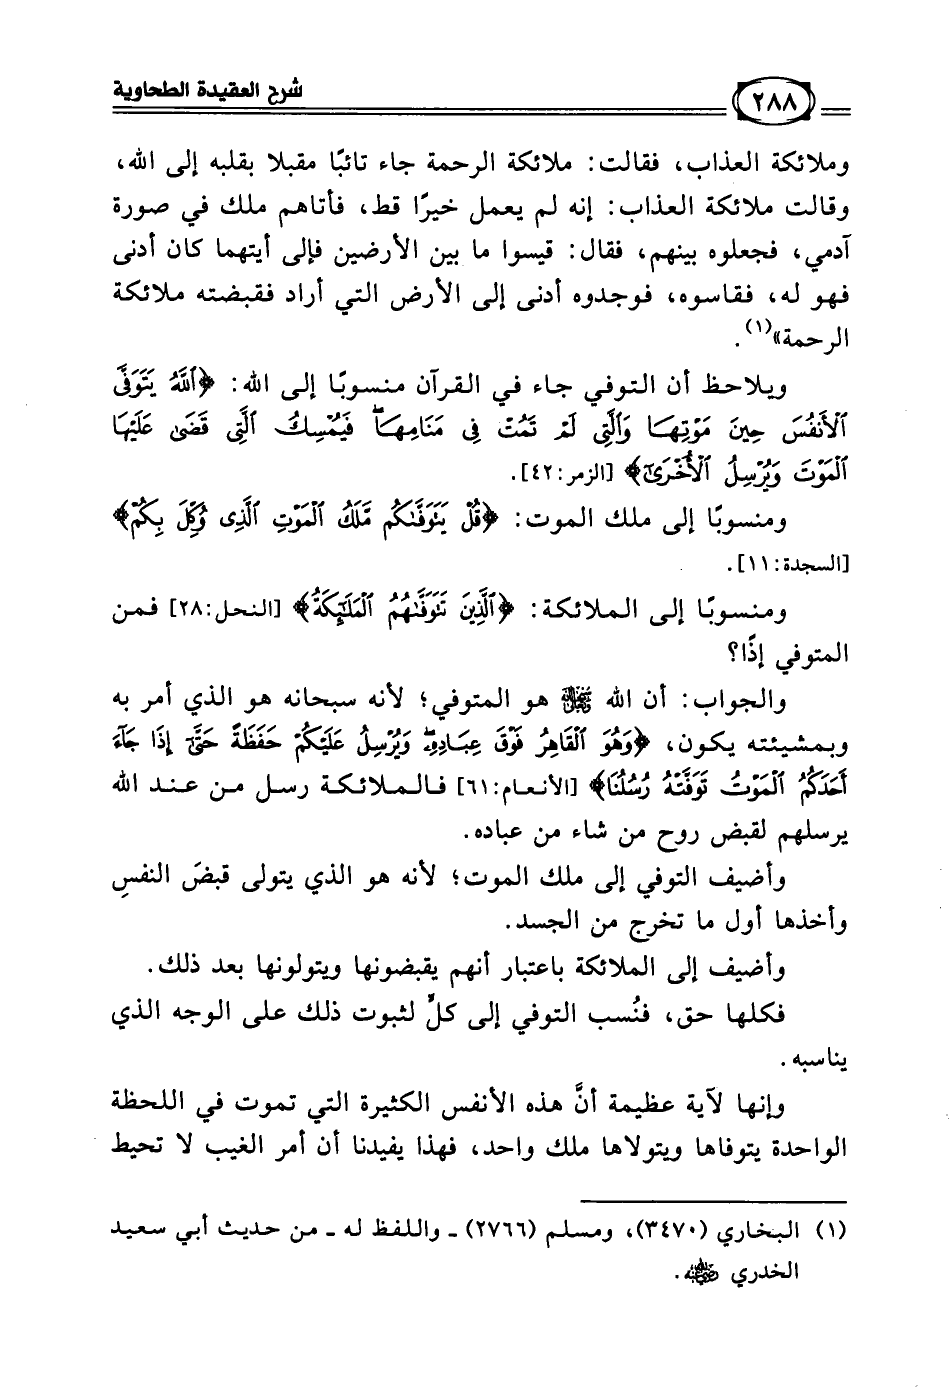 شرح العقيدة الطحاوية
٢٨٨
وملائكة العذاب، فقالت: ملائكة الرحمة جاء تائبًا مقبلا بقلبه إلى الله،
وقالت ملائكة العذاب: إنه لم يعمل خيرًا قط، فأتاهم ملك في صورة
آدمي، فجعلوه بينهم، فقال: قيسوا ما بين الأرضين فإلى أيتهما كان أدنى
فهو له، فقاسوه، فوجدوه أدنى إلى الأرض التي أراد فقبضته ملائكة
الرحمة»(١).
ويلاحظ أن التوفي جاء في القرآن منسوبًا إلى الله: ﴿ٱللَّهُ يَتَوَفَّى
ٱلْأَنفُسَ حِينَ مَوْتِهَا وَٱلَّتِى لَمْ تَمُتْ فِى مَنَامِهَاۖ فَيُمْسِكُ ٱلَّتِى قَضَىٰ عَلَيْهَا
ٱلْمَوْتَ وَيُرْسِلُ ٱلْأُخْرَىٰٓ﴾ [الزمر:٤٢].
ومنسوبًا إلى ملك الموت: ﴿قُلْ يَتَوَفَّىٰكُم مَّلَكُ ٱلْمَوْتِ ٱلَّذِى وُكِّلَ بِكُمْ﴾
[السجدة:١١].
ومنسوبًا إلى الملائكة: ﴿ٱلَّذِينَ تَتَوَفَّىٰهُمُ ٱلْمَلَٰٓئِكَةُ﴾ [النحل:٢٨] فمن
المتوفي إذًا؟
والجواب: أن الله ﷻ هو المتوفي؛ لأنه سبحانه هو الذي أمر به
وبمشيئته يكون، ﴿وَهُوَ ٱلْقَاهِرُ فَوْقَ عِبَادِهِۦۖ وَيُرْسِلُ عَلَيْكُمْ حَفَظَةً حَتَّىٰٓ إِذَا جَآءَ
أَحَدَكُمُ ٱلْمَوْتُ تَوَفَّتْهُ رُسُلُنَا﴾ [الأنعام:٦١] فالملائكة رسل من عند الله
يرسلهم لقبض روح من شاء من عباده.
وأضيف التوفي إلى ملك الموت؛ لأنه هو الذي يتولى قبضَ النفسِ
وأخذها أول ما تخرج من الجسد.
وأضيف إلى الملائكة باعتبار أنهم يقبضونها ويتولونها بعد ذلك.
فكلها حق، فنُسب التوفي إلى كلٍّ لثبوت ذلك على الوجه الذي
يناسبه.
وإنها لآية عظيمة أنَّ هذه الأنفس الكثيرة التي تموت في اللحظة
الواحدة يتوفاها ويتولاها ملك واحد، فهذا يفيدنا أن أمر الغيب لا تحيط
(١) البخاري (٣٤٧٠)، ومسلم (٢٧٦٦) ـ واللفظ له ـ من حديث أبي سعيد
الخدري رضي الله عنه.